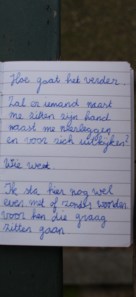 Hoe gaat het verder
Zal er iemand naast
me zitten zijn hand
naast me neerleggen
en voor zich uitkijken?
Wie weet
Ik sta hier nog wel
even met of zonder woorden
voor hen die graag
zitten gaan